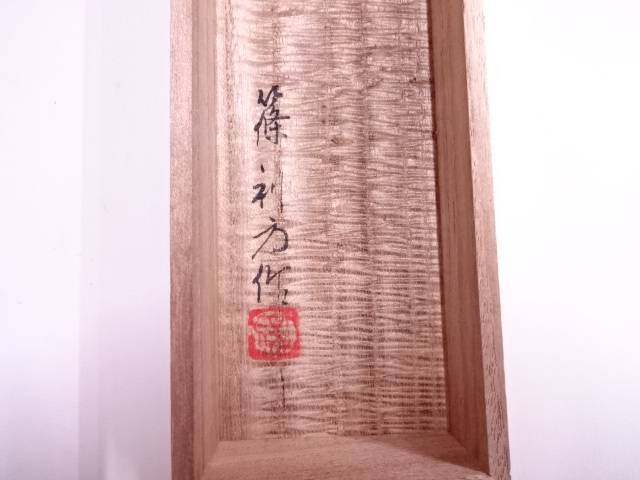 篠利方作